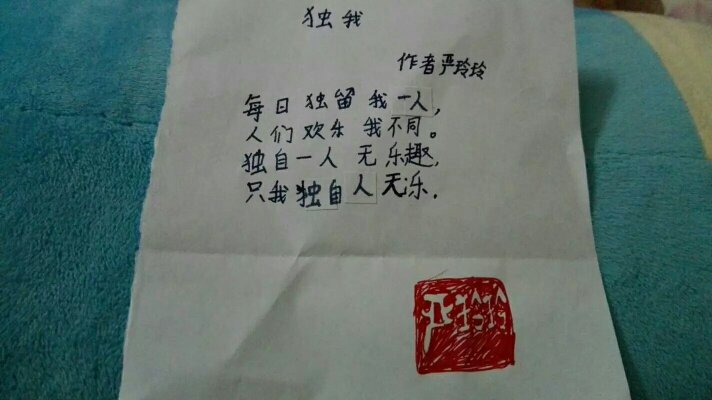 独我
作者严玲玲
每日独留我一人,
人们欢乐我不同。
独自一人无乐趣,
只我独自人无乐.
严玲玲